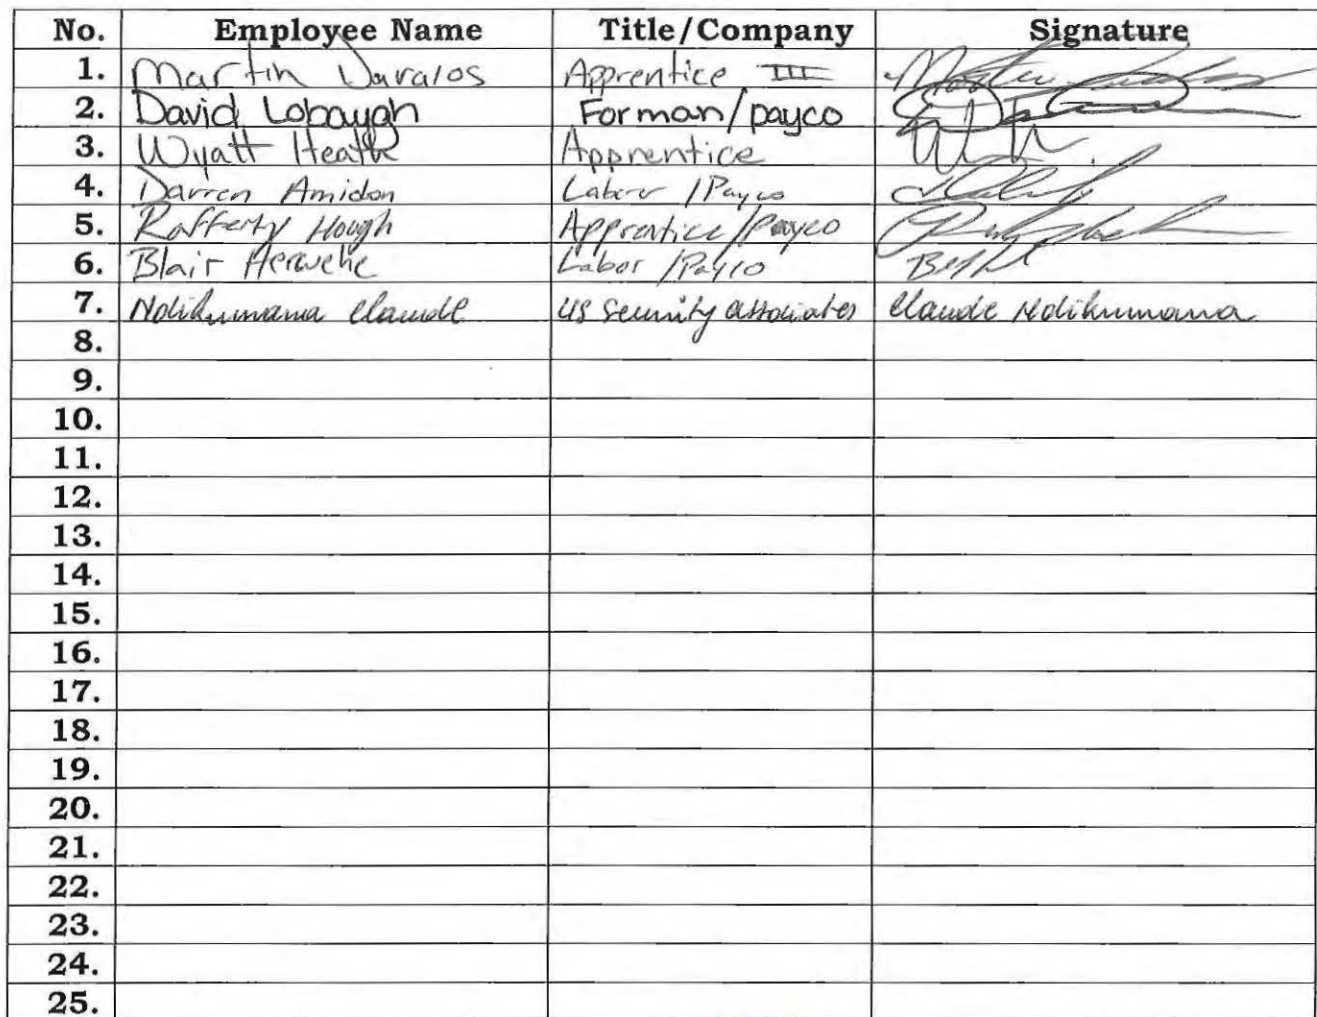 No. Employee Name Title/Company Signature
1. Martin Davalos Apprentice III
2. David Lobaugh Forman/payco
3. Wyatt Heath Apprentice
4. Darren Amidon Labor /Payco
5. Rafferty Hough Apprentice/payco
6. Blair Labor /Payco
7. Ndikumana Claude US Security associates Claude Ndikumana
8.
9.
10.
11.
12.
13.
14.
15.
16.
17.
18.
19.
20.
21.
22.
23.
24.
25.